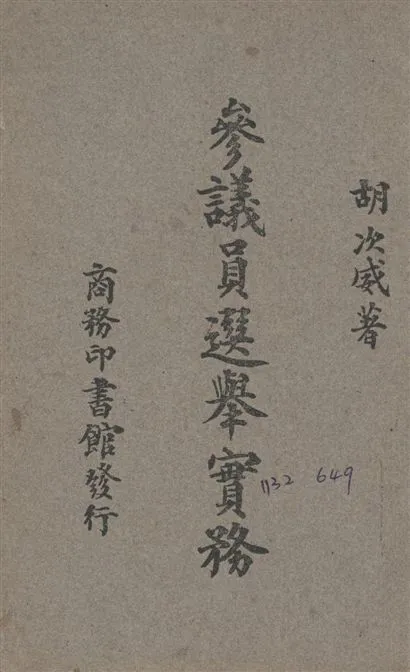 胡次威著
參議員選舉實務
1132 649
商務印書館發行